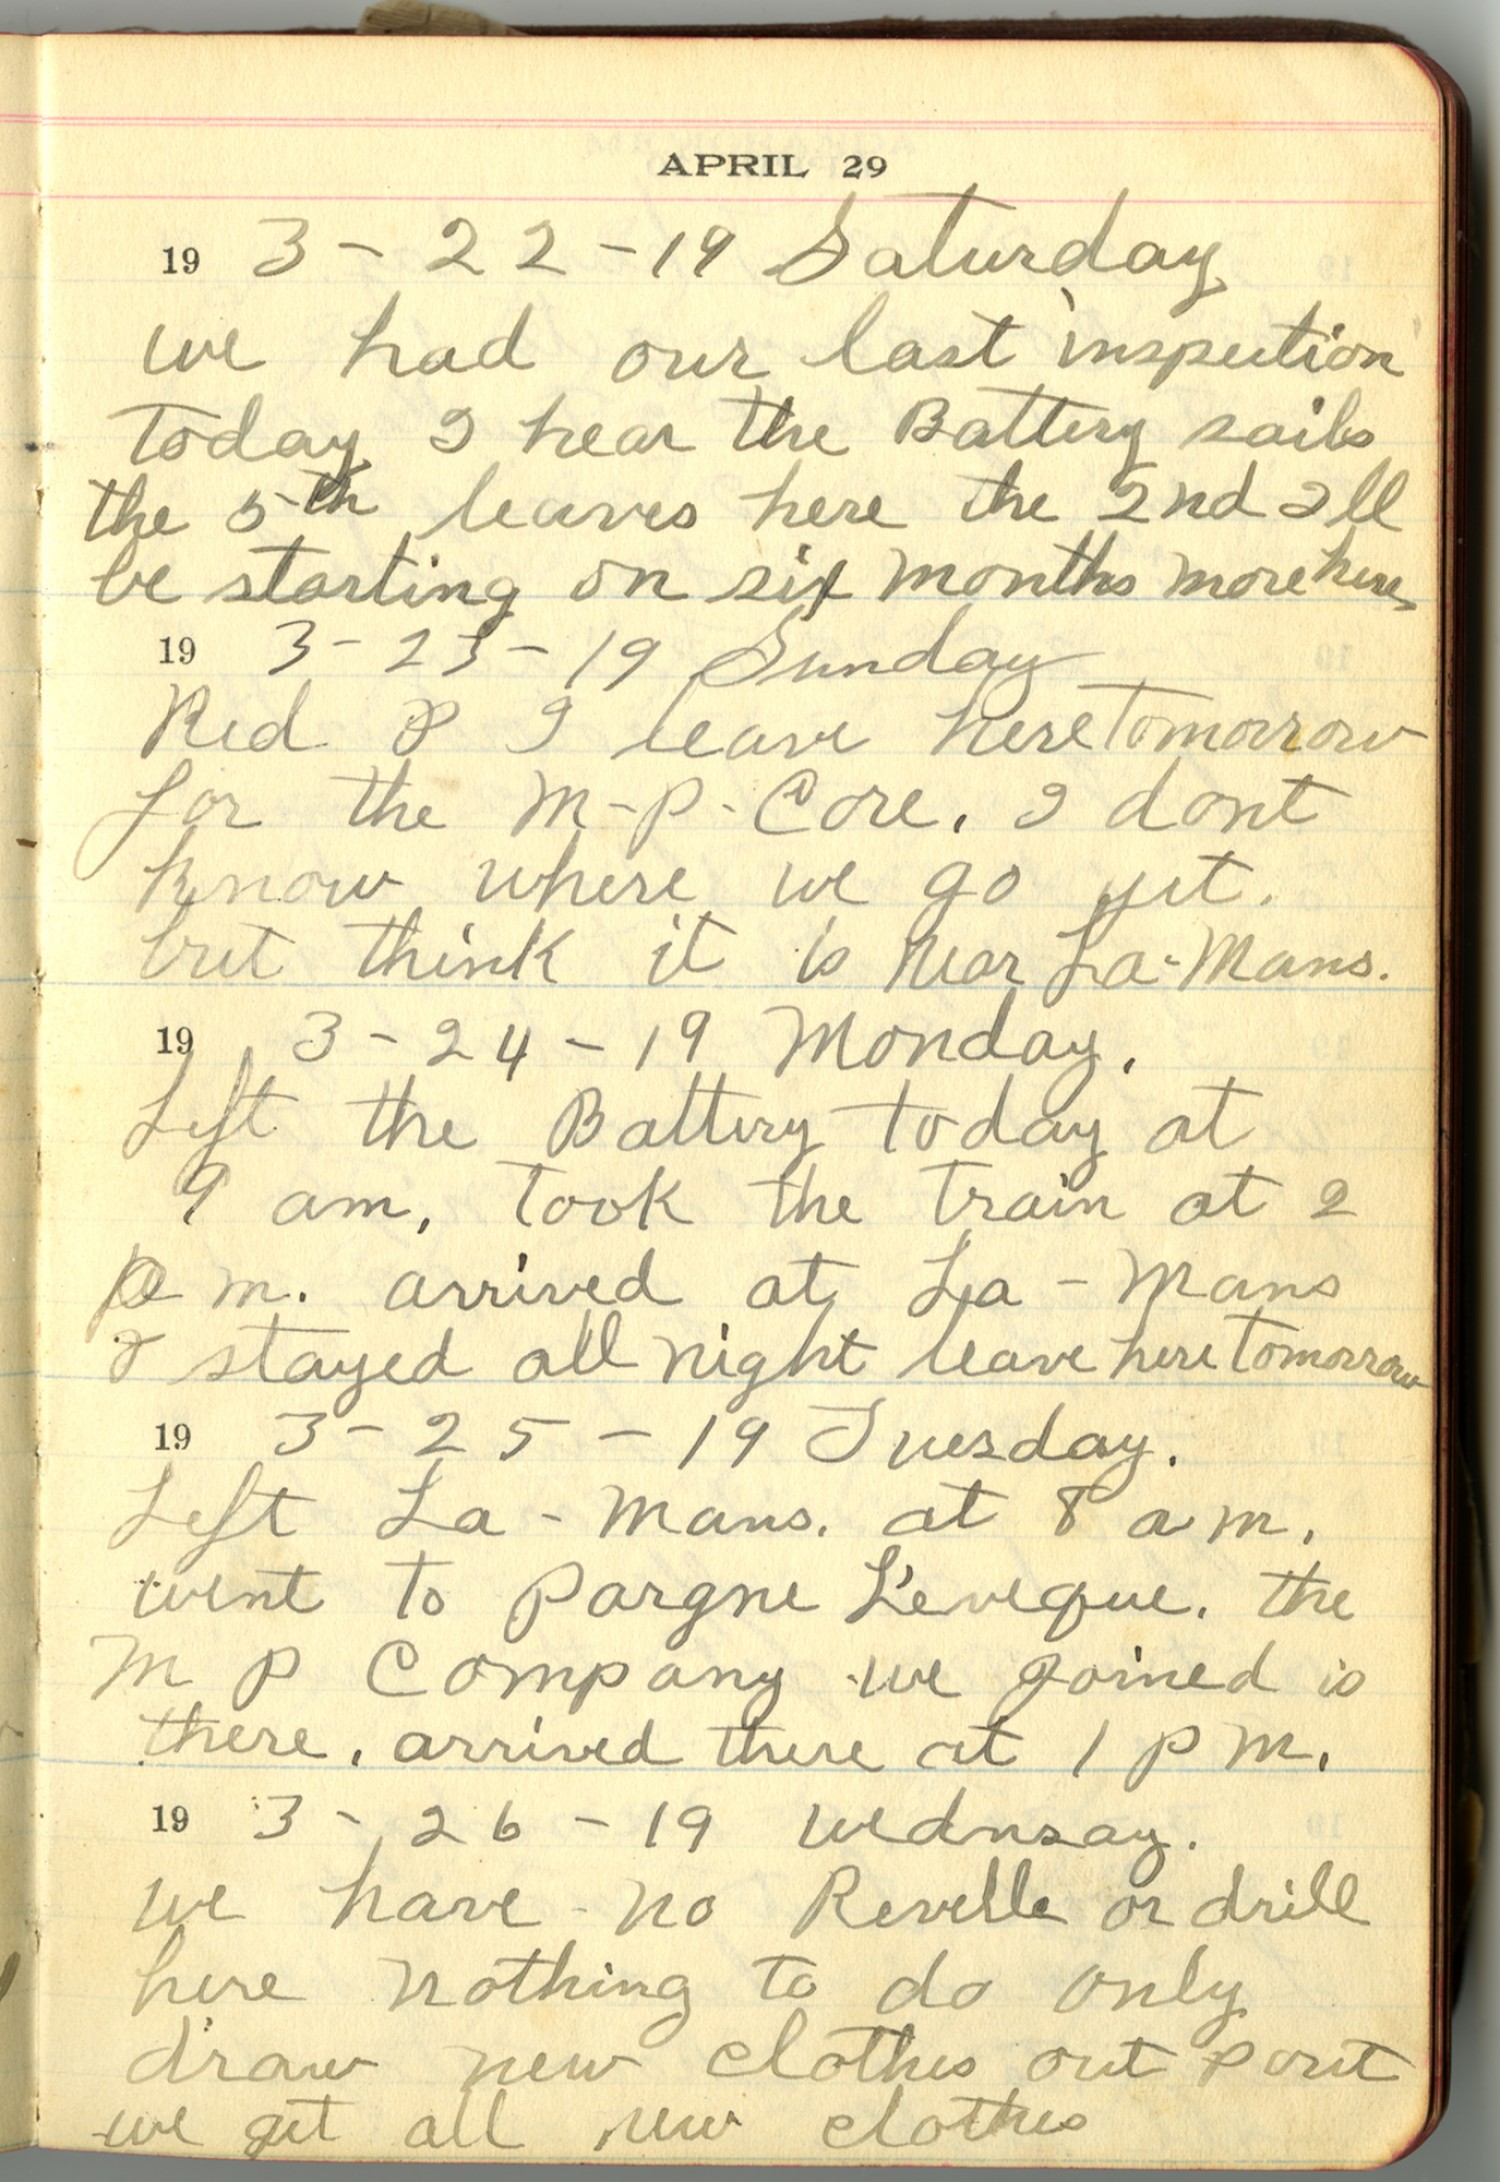 APRIL 29
19 3-22-19 Saturday
we had our last inspection
today I hear the Battery sails
the 5th leaves here the 2nd Ill
be starting on six months more here
19 3-23-19 Sunday
Red & I leave here tomorrow
for the M-P-Core. I dont
know where we go yet.
but think it is near La-Mans.
19 3-24-19 Monday.
Left the Battery today at
9 am, took the train at 2
p m. arrived at La-Mans
& stayed all night leave here tomorrow
19 3-25-19 Tuesday.
Left La-Mans. at 8 a m.
went to Pargne L'eveque. the
M P Company we joined is
there. arrived there at 1 P M.
19 3-26-19 wednsay.
we have no Revelle or drill
here nothing to do only
draw new clothes out
we get all new clothes